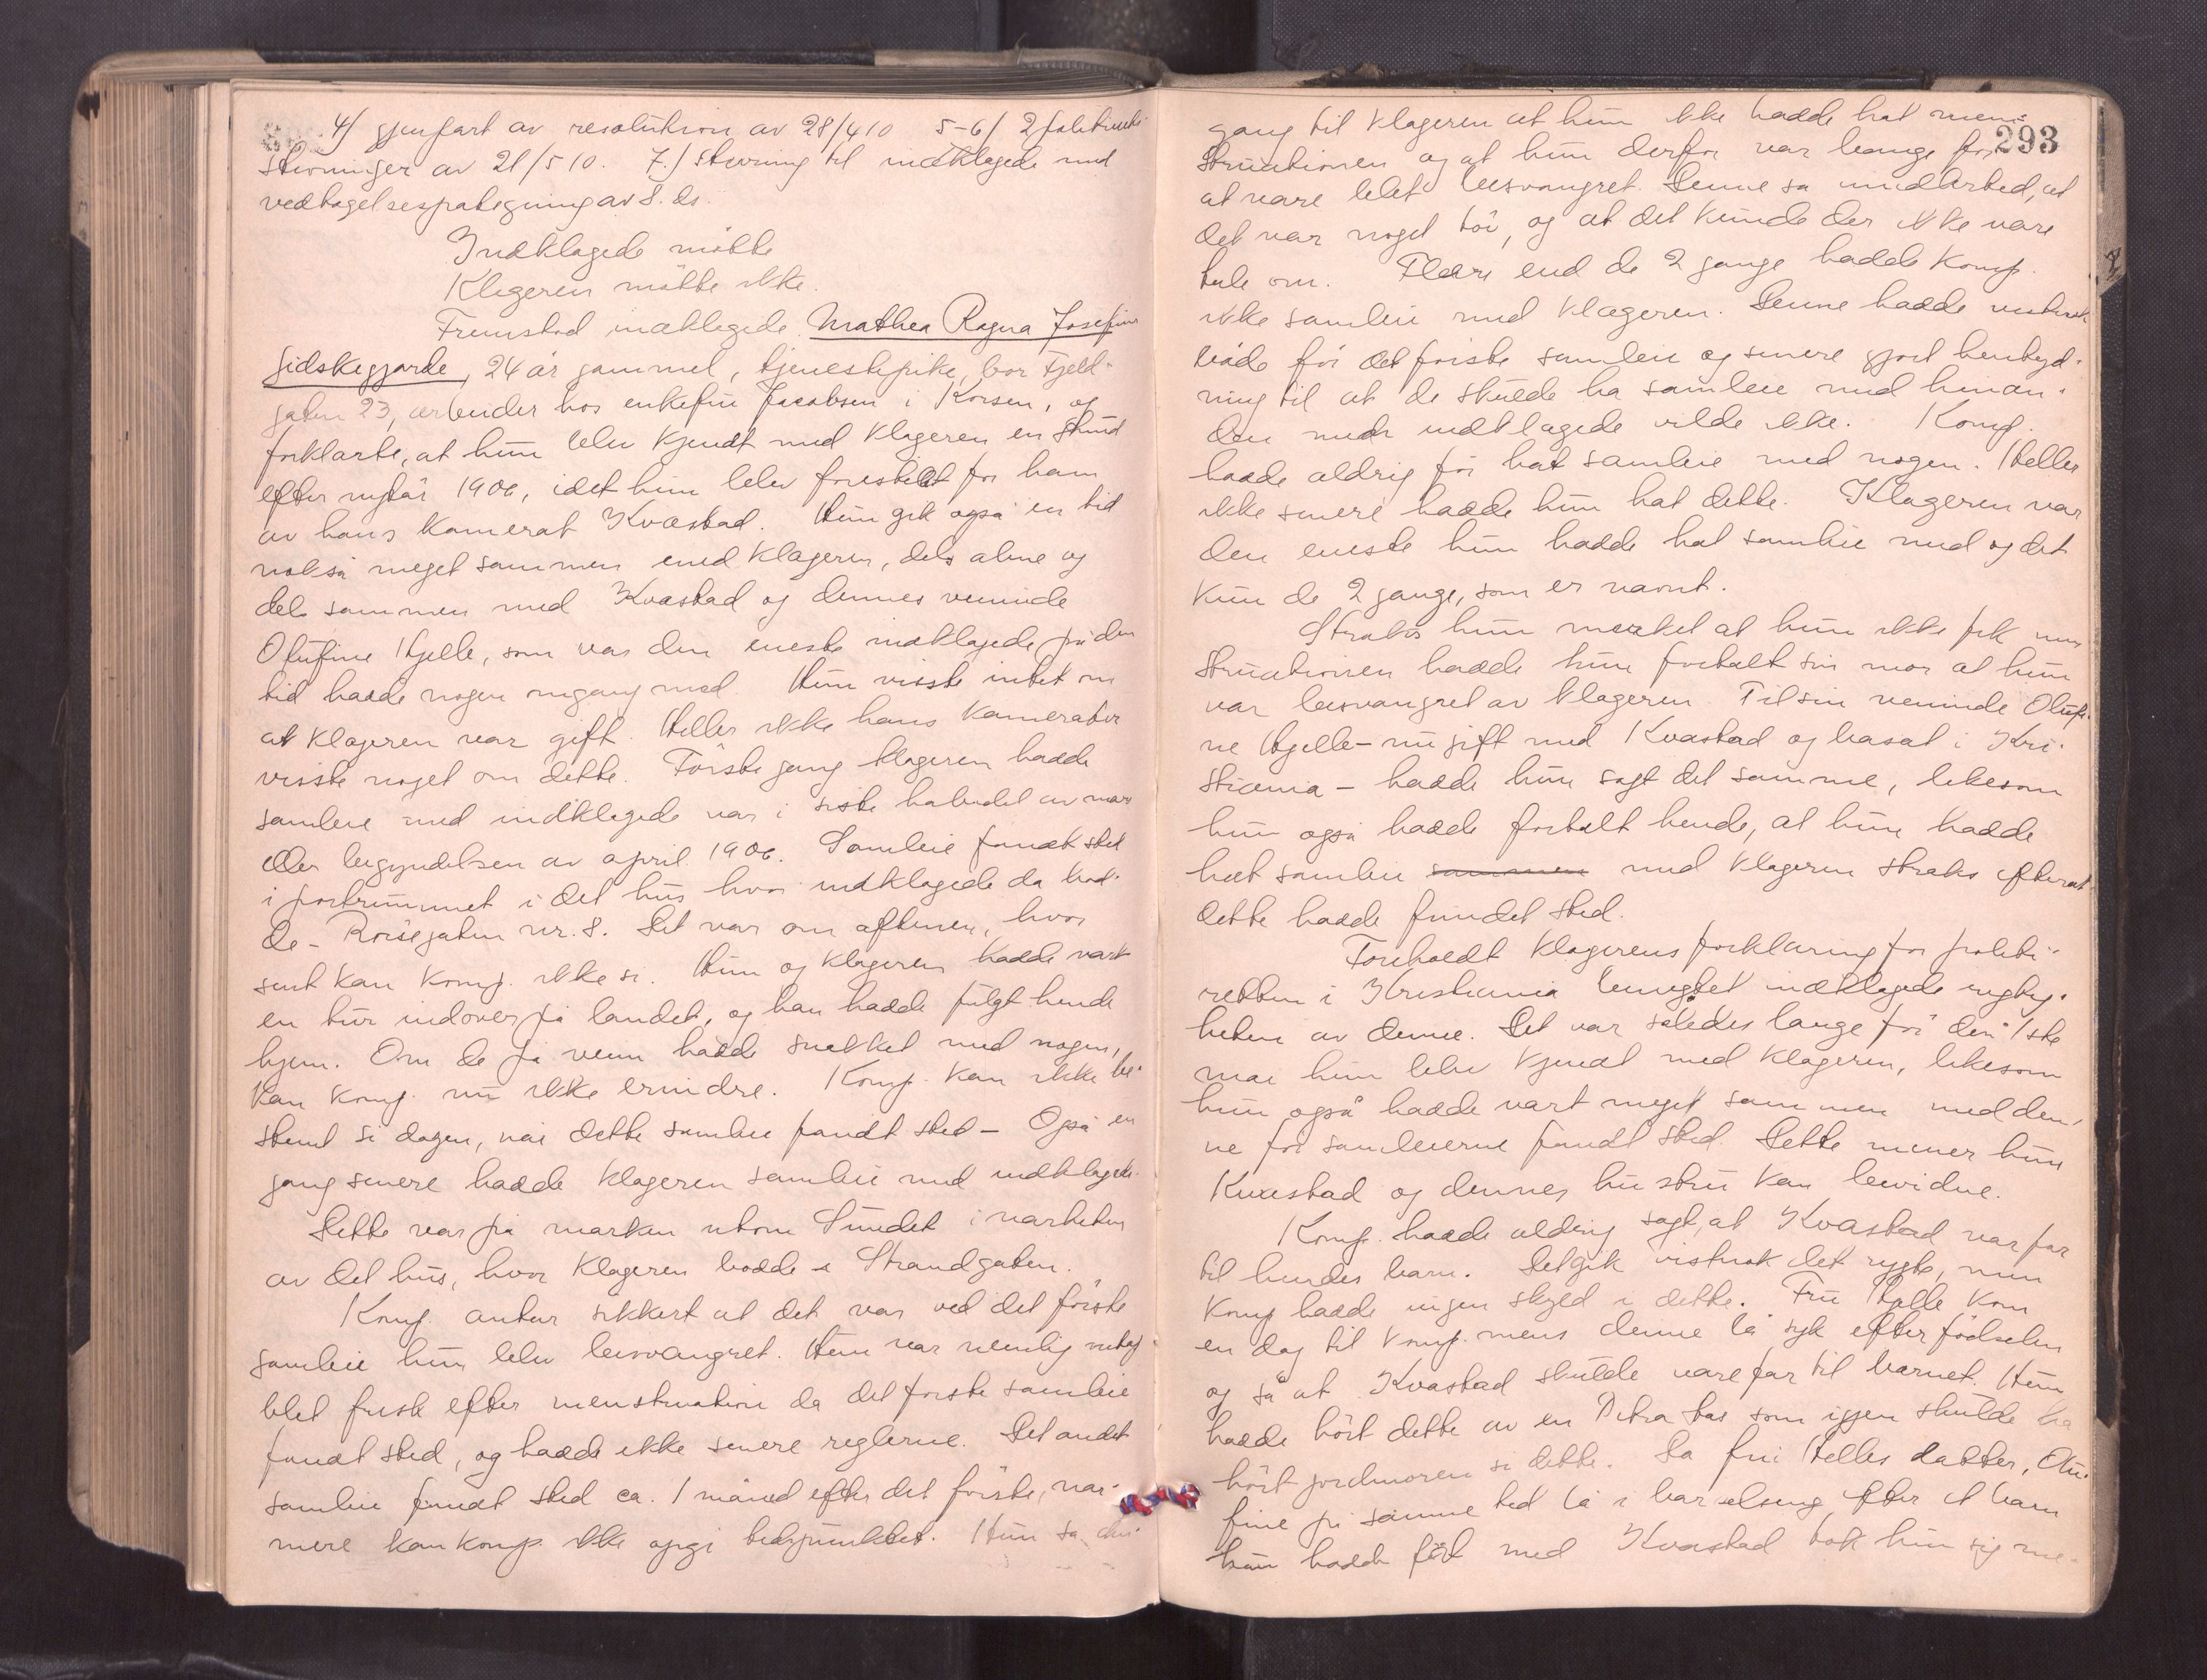 4/ gjenpart av resolution av 28/4 10 5-6/ 2 politirets-
stevninger av 21/5 10. 7./ Stevning til indklagede med
vedtagelsespategning av 8. ds.
Indklagede mötte
Klageren mötte ikke.
Fremstod indklagede Mathea Ragna Josefine
Gidskegjerde, 24 år gammel, tjenestepike, bor Fjeld-
gaten 23, arbeider hos enkefru Jacobsen i Korsen, og
forklarte, at hun blev kjendt med klageren en stund
efter nytår 1906, idet hun blev forestillet for ham
av hans kamerat Kvastad. Hun gik også en tid
nokså meget sammen med klageren, dels alene og
dels sammen med Kvastad og dennes veninde
Olufine Helle, som var den eneste indklagede på den
tid hadde nogen omgang med. Hun visste intet om
at klageren var gift. Heller ikke hans kamerater
visste noget om dette. Förste gang klageren hadde
samleie med indklagede var i siste halvdel av mars
eller begyndelsen av april 1906. Samleie fandt sted
i portrummet i det hus hvor indklagede da bod-
de - Röisegaten nr. 8. Det var om aftenen, hvor
sent kan komp. ikke si. Hun og klageren hadde vært
en tur indover på landet, og han hadde fulgt hende
hjem. Om de på veien hadde snakket med nogen,
kan komp. nu ikke erindre. Komp. kan ikke be-
stemt si dagen, når dette samleie fandt sted - Også en
gang senere hadde klageren samleie med indklagede.
Dette var på marken utom Sundet i nærheten
av det hus, hvor klageren bodde i Strandgaten.
Komp. antar sikkert at det var ved det förste
samleie hun blev besvangret. Hun var nemlig netop
blet frisk efter menstruation da det förste samleie
fandt sted, og hadde ikke senere reglerne. Det andet
samleie fandt sted ca. 1 måned efter det förste, nær-
mere kan komp. ikke opgi tidspunktet. Hun sa den
293
gang til klageren at hun ikke hadde hat men-
struationen og at hun derfor var bange for
at være blet besvangret. Denne sa imidlertid, at
det var noget töi, og at det kunde der ikke være
tale om. Flere end de 2 gange hadde komp.
ikke samleie med klageren. Denne hadde vistnok
både för det förste samleie og senere gjort hentyd-
ning til at de skulde ha samleie med hinan-
den men indklagede vilde ikke. Komp.
hadde aldrig för hat samleie med nogen. Heller
ikke senere hadde hun hat dette. Klageren var
den eneste hun hadde hat samleie med og det
kun de 2 gange, som er nævnt.
Straks hun merket at hun ikke fik men
struationen hadde hun fortalt sin mor at hun
var besvangret av klageren. Til sin veninde Olufi-
ne Helle - nu gift med Kvastad og bosat i Kri-
stiania - hadde hun sagt det samme, likesom
hun også hadde fortalt hende, at hun hadde
hat samleie sammen med klageren straks efterat
dette hadde fundet sted.
Foreholdt klagerens forklaring for politi-
retten i Kristiania benegtet indklagede rigtig-
heten av denne. Det var således lange för den 1ste
mai hun blev kjendt med klageren, likesom
hun også hadde vært meget sammen med den-
ne för samleierne fandt sted. Dette mener hun
Kvastad og dennes hustru kan bevidne.
Komp. hadde aldrig sagt, at Kvastad var far
til hendes barn. Det gik vistnok det rygte, men
komp hadde ingen skyld i dette. Fru Helle kom
en dag til komp. mens denne lå syk efter födselen
og sa at Kvastad skulde være far til barnet. Hun
hadde hört dette av en Petra som igjen skulde ha
hört jordmoren si dette. Da fru Helles datter, Olu-
fine på samme tid lå i barselseng efter et barn
hun hadde fåt med Kvastad tok hun sig me-